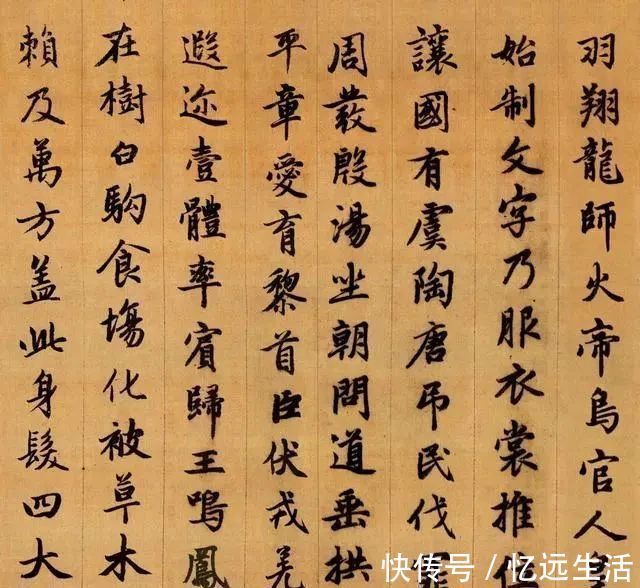 羽翔龍師火帝鳥官人
始制文字乃服衣裳推位
讓國有虞陶唐吊民伐
周發殷湯坐朝問道垂拱
平章愛育黎首臣伏戎羌
遐迩壹體率賓歸王鳴鳳
在樹白駒食場化被草木
賴及萬方盖此身髮四大
快传号/忆远生活